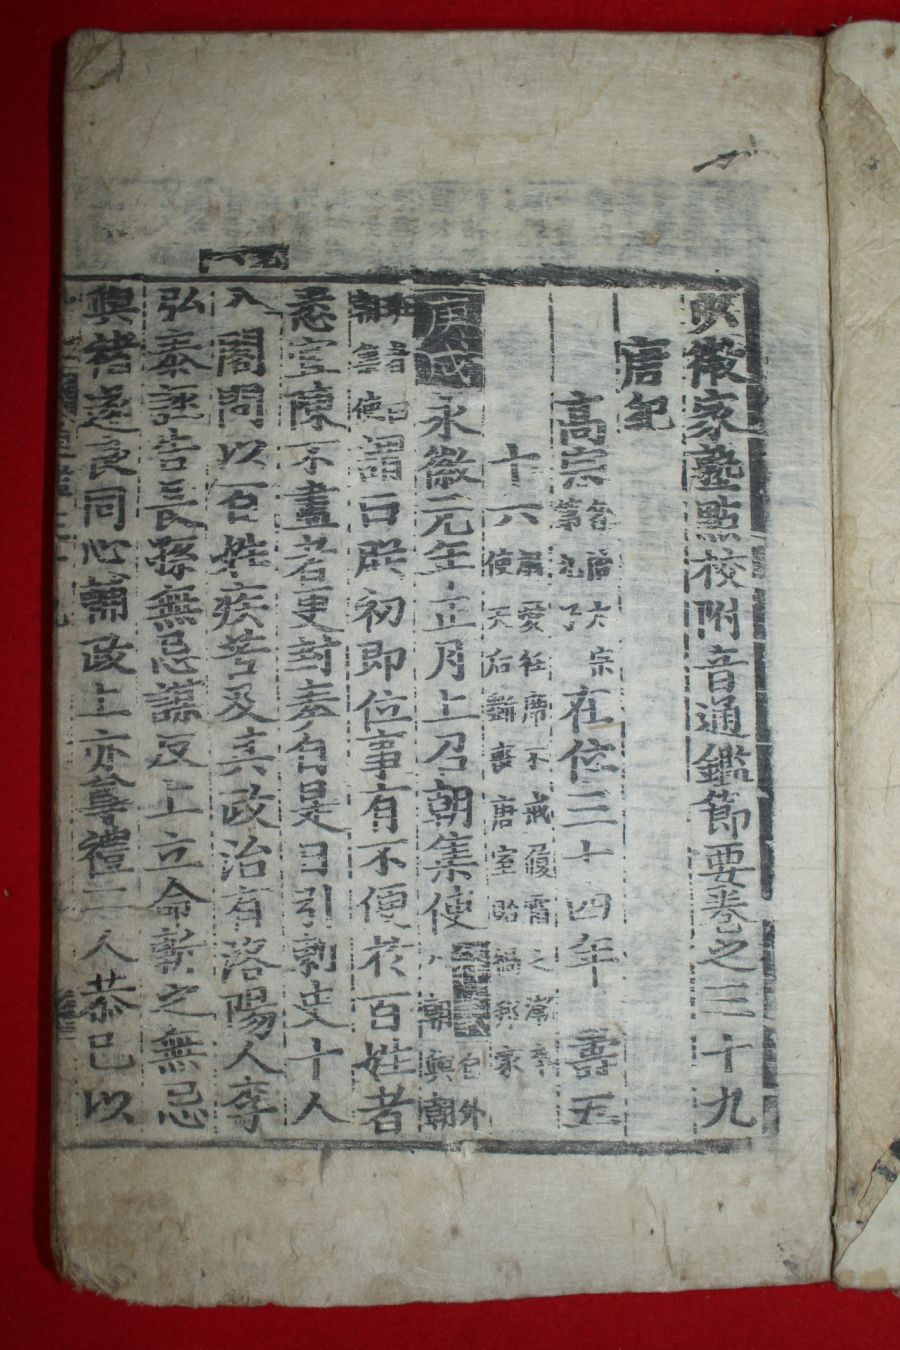 徽家塾點校附音通鑑節要卷之三十九
唐紀
高宗 名治太宗第九子 在位三十四年 壽五
十六 溺愛衽席不戒履霜之漸使天后斲喪唐室貽禍邦家
庚戌 永徽元年正月上召朝集使 外朝
謂曰朕初即位事有不便於百姓者
悉宜陳不盡者更封奏自是日引刺史十人
入閤問以百姓疾苦及其政治有洛陽人李
弘泰誣告長孫無忌謀反上立命斬之無忌
與褚遂良同心輔政上亦尊禮二人恭己以